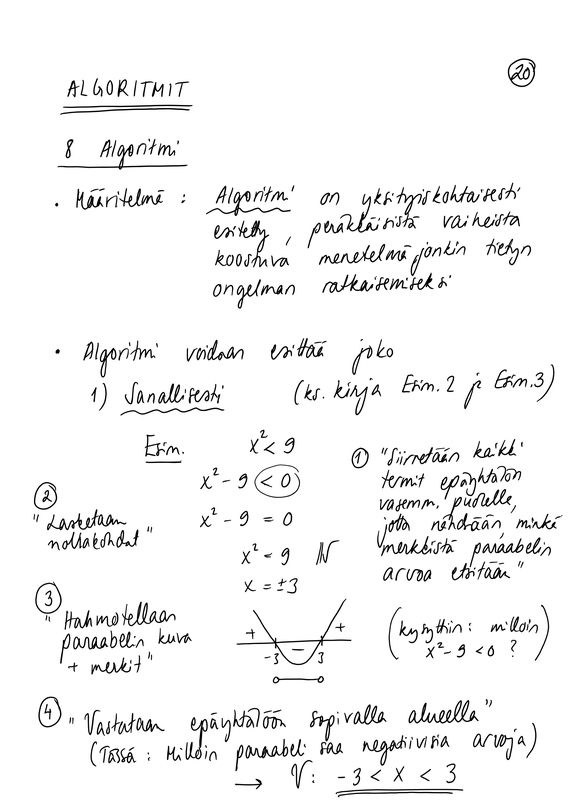 20
ALGORITMIT
8 Algoritmi
• Määritelmä : Algoritmi on yksityiskohtaisesti
esitetty, peräkkäisistä vaiheista
koostuva menetelmä jonkin tietyn
ongelman ratkaisemiseksi
• Algoritmi voidaan esittää joko
1) Sanallisesti (ks. kirja Esim. 2 ja Esim. 3)
Esim. x² < 9
x² - 9 < 0
① "Siirretään kaikki
termit epäyhtälön
vasemm. puolelle,
jotta nähdään, minkä
merkkistä paraabelin
arvoa etsitään"
②
"Lasketaan
nollakohdat"
x² - 9 = 0
x² = 9
x = ±3
③
"Hahmotellaan
paraabelin kuva
+ merkit"
+ - +
-3 3
(kysyttiin: milloin
x² - 9 < 0 ?)
④ "Vastataan epäyhtälöön sopivalla alueella"
(Tässä : Milloin paraabeli saa negatiivisia arvoja)
→ V: -3 < x < 3